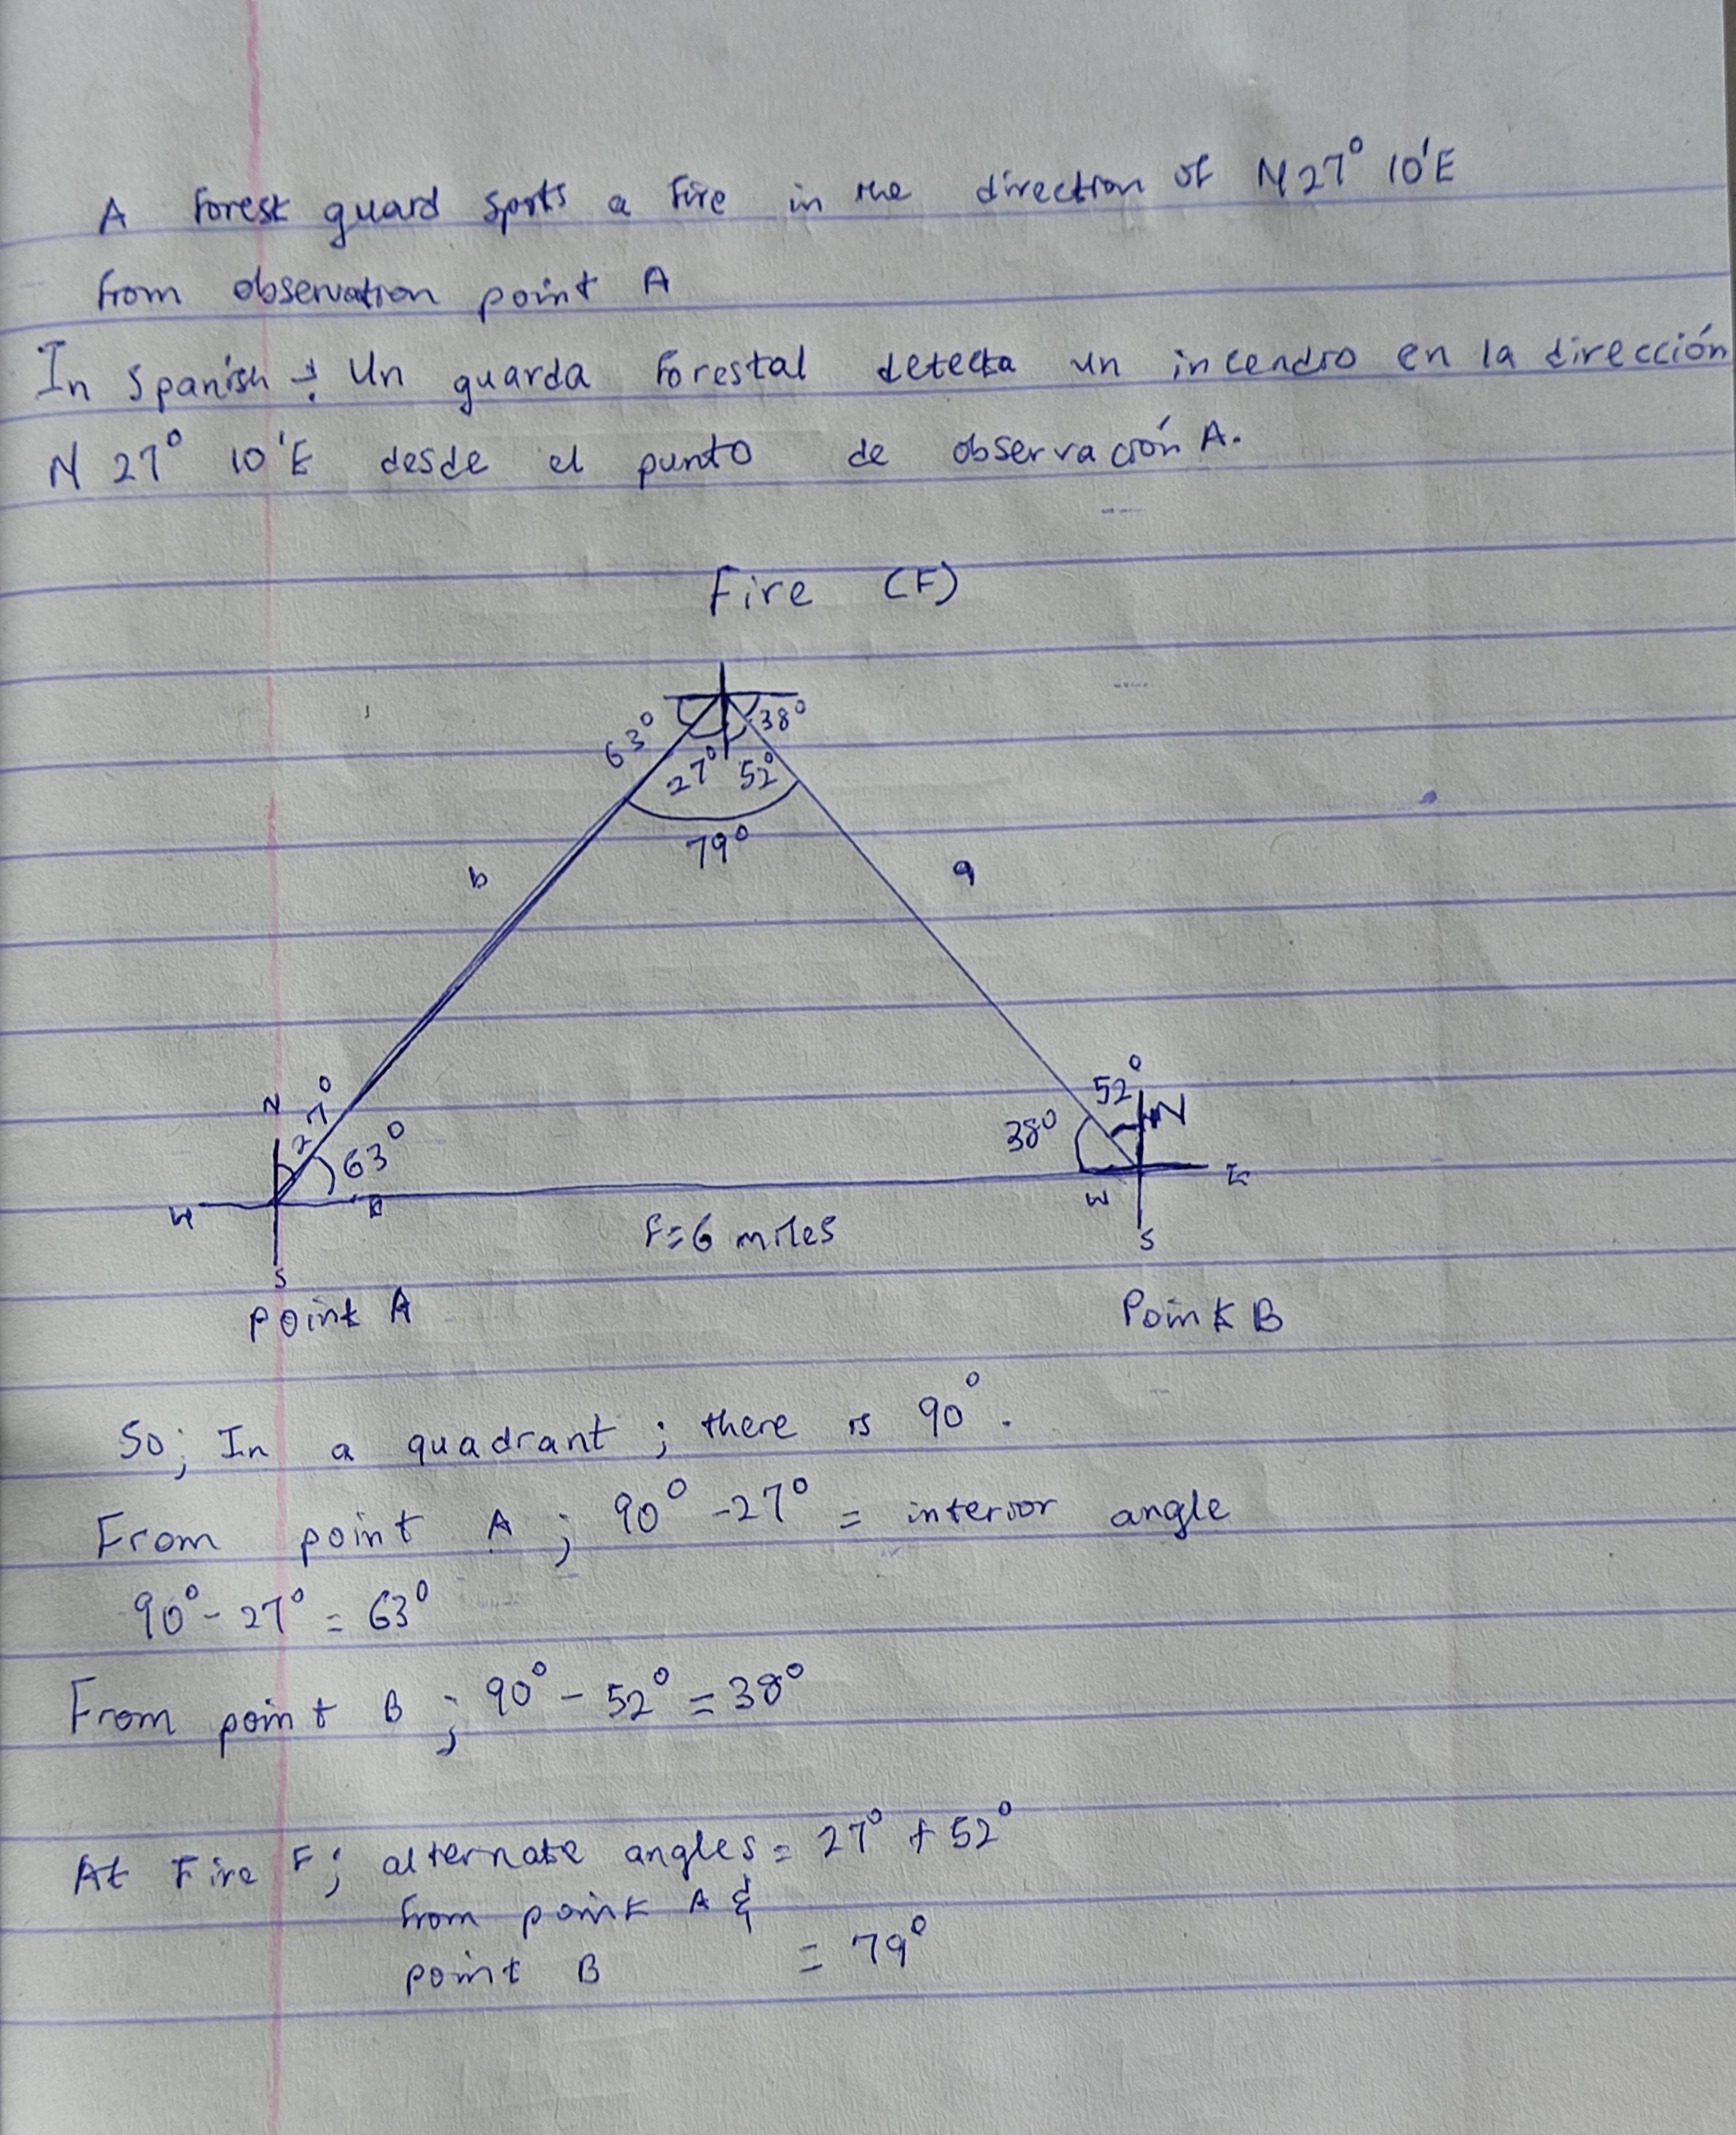 A forest guard spots a fire in the direction of N 27° 10'E
from observation point A
In Spanish : Un guarda forestal detecta un incendio en la dirección
N 27° 10'E desde el punto de observación A.
Fire (F)
63° 38°
27° 52°
79°
b a
N 27° 63°
W E
S
52° N
38°
W E
S
f=6 miles
Point A Point B
So; In a quadrant ; there is 90°.
From point A ; 90° - 27° = interior angle
90° - 27° = 63°
From point B ; 90° - 52° = 38°
At Fire F; alternate angles = 27° + 52°
from point A &
point B = 79°